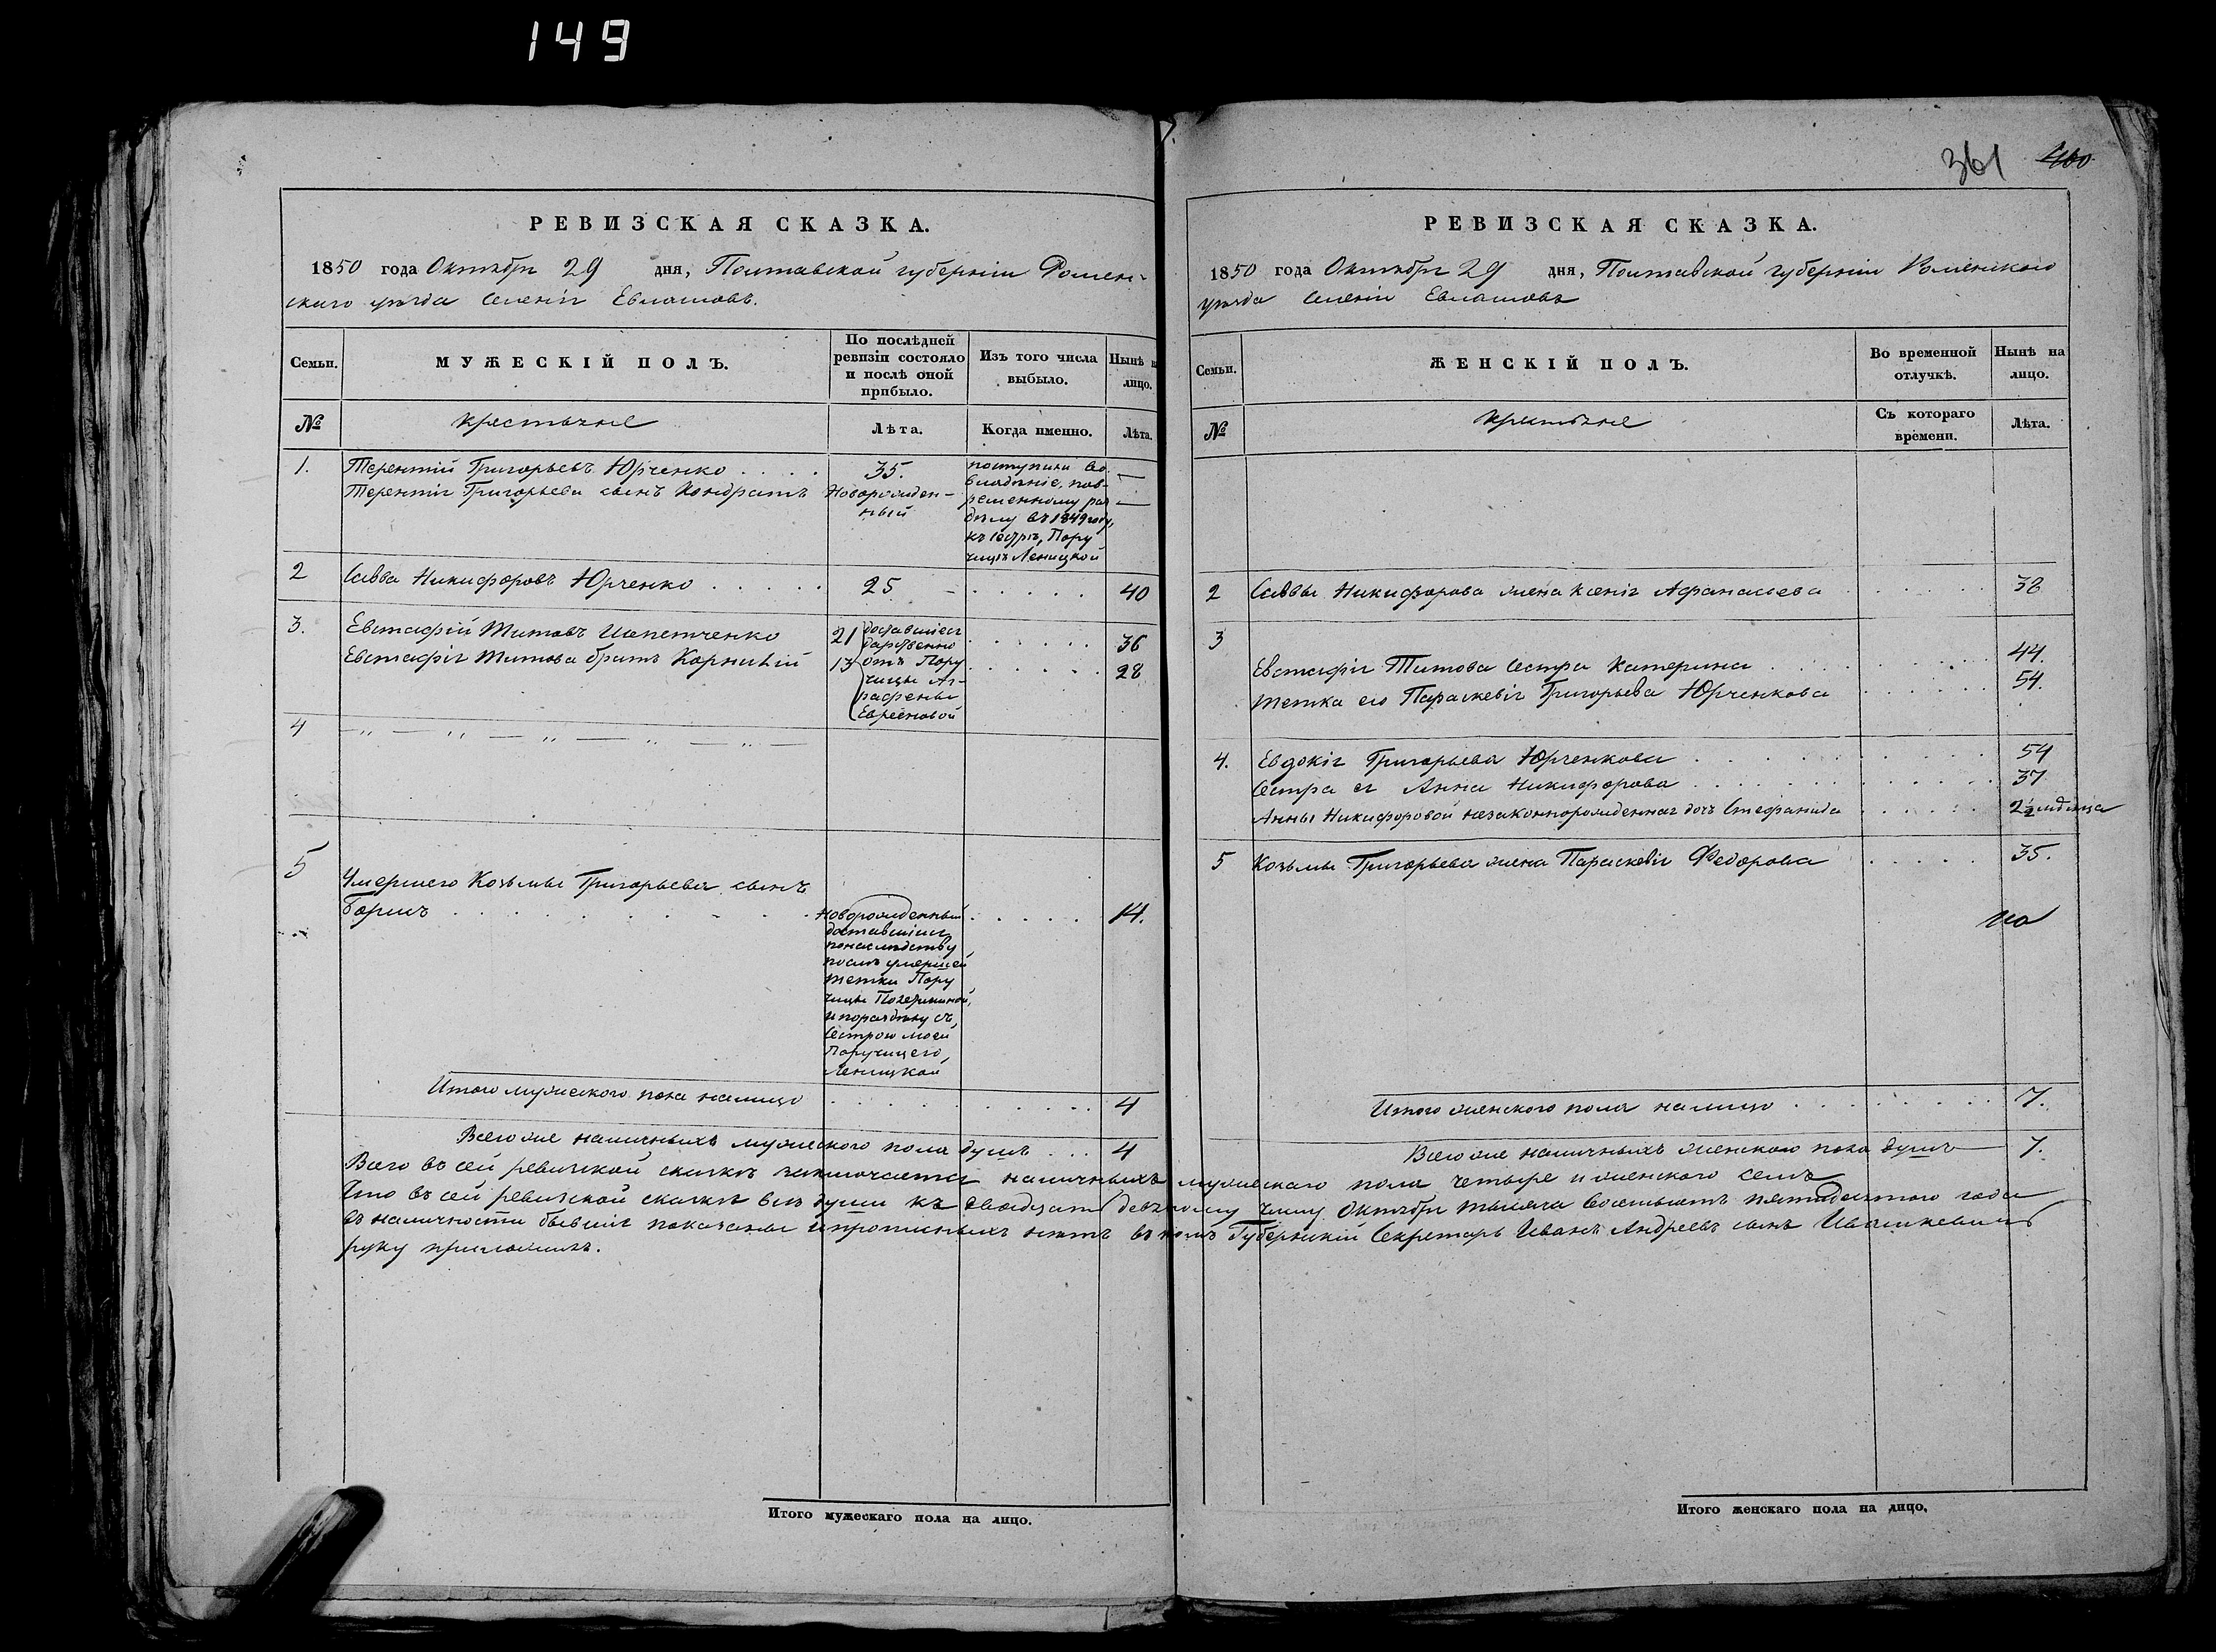 149
361 400
РЕВИЗСКАЯ СКАЗКА.
1850 года Октября 29 дня, Полтавской губерніи Ромен-
скаго уезда Селенія Евлашовъ.
Семьи.
МУЖЕСКІЙ ПОЛЪ.
По послѣдней ревизіи состояло и послѣ оной прибыло.
Изъ того числа выбыло.
Нынѣ на лицо.
№
крестьяне
Лѣта.
Когда именно.
Лѣта.
1. Терентій Григорьевъ Юрченко . . . . 35. поступили во —
Терентія Григорьева сынъ Кондратъ Новорожден- владѣніе, пов- —
ный ременному раз
дѣлу въ 1849 году,
къ сестрѣ, Пору
чицѣ Леницкой
2 Савва Никифоровъ Юрченко . . . . . 25 - . . . . . 40
3. Евстафій Титовъ Шепетченко 21 доставшіеся . . . . . 36
Евстафія Титова братъ Корнилій 13 дарственно
отъ Пору . . . . . 28
чицы Аг-
рафены
Евреиновой
4 — „ — „ — „ — „ — „ —
5 Умершего Козьмы Григорьева сынъ
Борисъ . . . . . . . . Новорожденный . . . . . 14.
доставшійся
понаследству
послѣ умершей
тетки Пору
чицы
и поразделу съ,
Сестрою моей
Поручицею,
Леницкой
Итого мужеского пола налицо . . . . . . . . . 4
Всего же наличныхъ мужеского пола душъ . . . 4
РЕВИЗСКАЯ СКАЗКА.
1850 года Октября 29 дня, Полтавской губерніи Роменского
уезда Селенія Евлашовъ
Семьи.
ЖЕНСКІЙ ПОЛЪ.
Во временной отлучкѣ.
Нынѣ на лицо.
№
крестьяне
Съ котораго времени.
Лѣта.
2 Саввы Никифорова жена Ксенія Афанасьева . . . . . . 38
3 Евстафія Титова Сестра Катерина . . . . . . . 44.
тетка его Параскевія Григорьева Юрченкова . . . . . . 54.
4. Евдокія Григорьева Юрченкова . . . . . . . . 54
Сестра ея Анна Никифорова . . . . . . . . 37
Анны Никифоровой незаконнорожденная дочь Стефанида . . . . . 2½ мѣсяца
5 Козьмы Григорьева жена Параскевія Федорова . . . . . 35.
Итого женского пола налицо . . . . . . . . 7.
Всего же наличныхъ женского пола душъ — 7.
Всего въ сей ревизской сказкѣ заключается наличныхъ мужескаго пола четыре и женского семь
Что въ сей ревизской сказкѣ всѣ души къ двадцать девятому числу Октября тысяча восемьсотъ пятидесятого года
въ наличности бывшія показаны и прописныхъ нѣтъ въ томъ Губернскій Секретарь Иванъ Андреевъ сынъ Ивашкевичъ
руку приложилъ.
Итого мужескаго пола на лицо.
Итого женскаго пола на лицо.